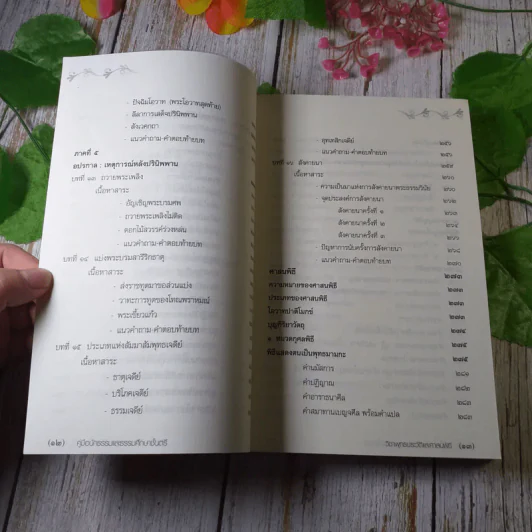 - ปัจฉิมโอวาท (พระโอวาทสุดท้าย)
- ลีลาการเสด็จปรินิพพาน
- สังเวคกถา
- แนวคำถาม-คำตอบท้ายบท
ภาคที่ ๕
อปรกาล : เหตุการณ์หลังปรินิพพาน
บทที่ ๑๓ ถวายพระเพลิง
เนื้อหาสาระ
- อัญเชิญพระบรมศพ
- ถวายพระเพลิงไม่ติด
- ดอกไม้สวรรค์ร่วงหล่น
- แนวคำถาม-คำตอบท้ายบท
บทที่ ๑๔ แบ่งพระบรมสารีริกธาตุ
เนื้อหาสาระ
- ส่งราชทูตมาขอส่วนแบ่ง
- วาทะการทูตของโทณพราหมณ์
- พระเขี้ยวแก้ว
- แนวคำถาม-คำตอบท้ายบท
บทที่ ๑๕ ประเภทแห่งสัมมาสัมพุทธเจดีย์
เนื้อหาสาระ
- ธาตุเจดีย์
- บริโภคเจดีย์
- ธรรมเจดีย์
(๑๒) คู่มือนักธรรมและธรรมศึกษาชั้นตรี
- อุทเทสิกเจดีย์
- แนวคำถาม-คำตอบท้ายบท
สังคายนา
เนื้อหาสาระ
- ความเป็นมาแห่งการสังคายนาพระธรรมวินัย
จุดประสงค์การสังคายนา
สังคายนาครั้งที่ ๑
สังคายนาครั้งที่ ๒
สังคายนาครั้งที่ ๓
- ปัญหาการนับครั้งการสังคายนา
- แนวคำถาม-คำตอบท้ายบท
ศาสนพิธี
ความหมายของศาสนพิธี
ประเภทของศาสนพิธี
โอวาทปาติโมกข์
บุญกิริยาวัตถุ
๑. หมวดกุศลพิธี
พิธีแสดงตนเป็นพุทธมามกะ
คำนมัสการ
คำปฏิญาณ
คำอาราธนาศีล
คำสมาทานเบญจศีล พร้อมคำแปล
วิชาพุทธประวัติและศาสนพิธี (๑๓)